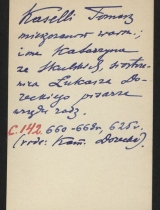 Kaselli Tomasz
mieszczanin warsz.;
żona Katarzyna
ze Skulskich, siostrze-
nica Łukasza Do-
reckiego pisarza
C. 142 660-668v, 625v.
(vide: Kam. Dorecki).